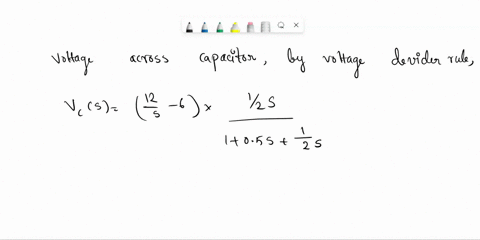 Voltage across capacitor, by voltage devider rule,
Vc(s) = (12/s - 6) × (1/2s)/(1 + 0.5s + 1/2s)